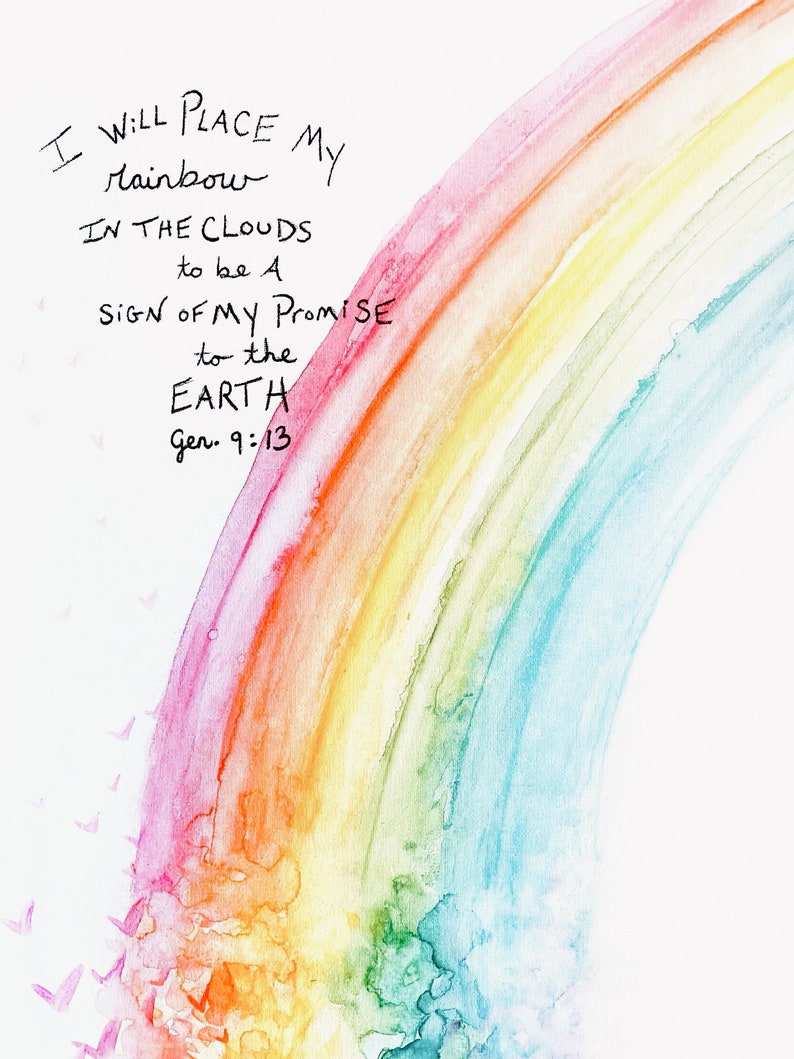 I WiLL PLACE MY
rainbow
IN THE CLOUDS
to be A
SiGN OF MY PROMiSE
to the
EARTH
Gen. 9:13